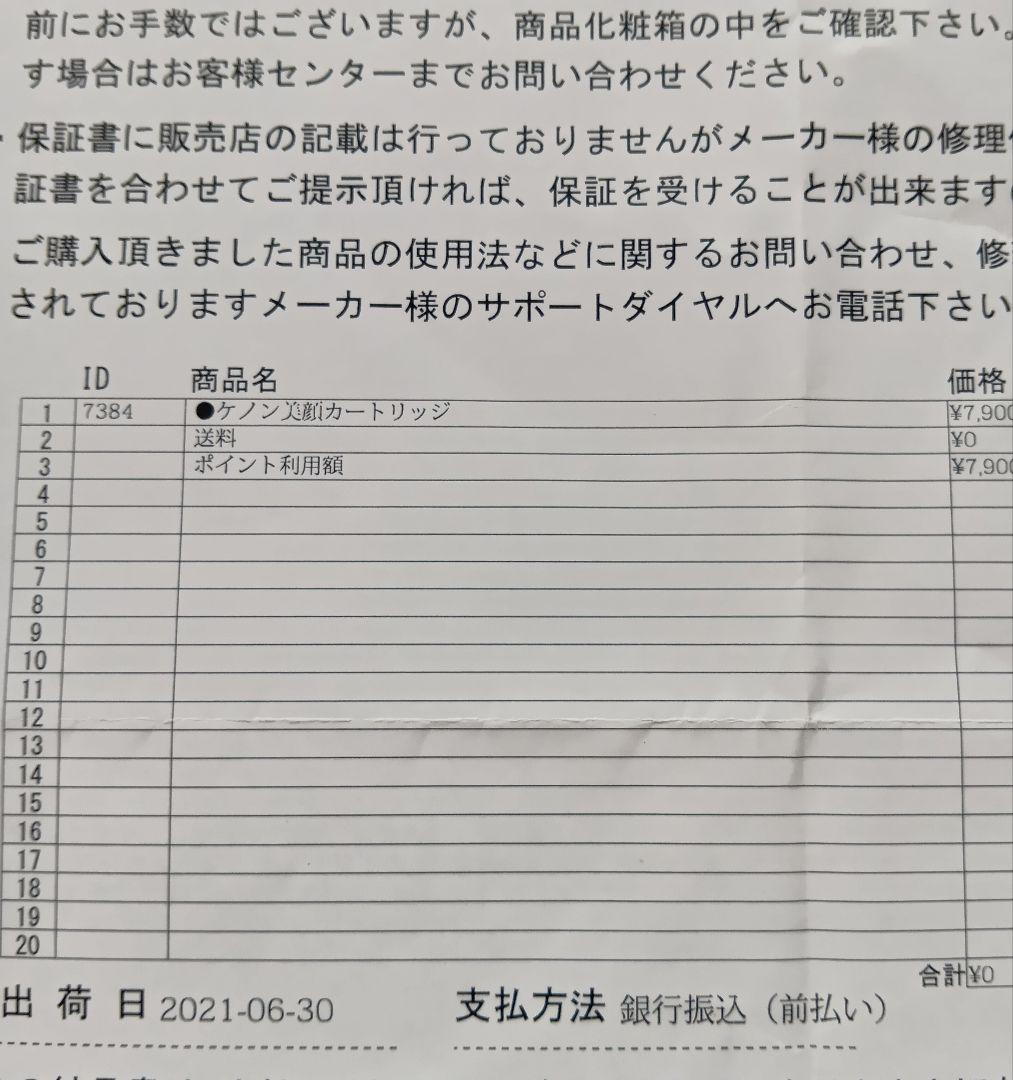 前にお手数ではございますが、商品化粧箱の中をご確認下さい。
す場合はお客様センターまでお問い合わせください。
・保証書に販売店の記載は行っておりませんがメーカー様の修理
証書を合わせてご提示頂ければ、保証を受けることが出来ます
ご購入頂きました商品の使用法などに関するお問い合わせ、修
されておりますメーカー様のサポートダイヤルへお電話下さい
ID 商品名 価格
1 7384 ●ケノン美顔カートリッジ ¥7,900
2 送料 ¥0
3 ポイント利用額 ¥7,900
4
5
6
7
8
9
10
11
12
13
14
15
16
17
18
19
20
合計 ¥0
出荷日 2021-06-30 支払方法 銀行振込（前払い）